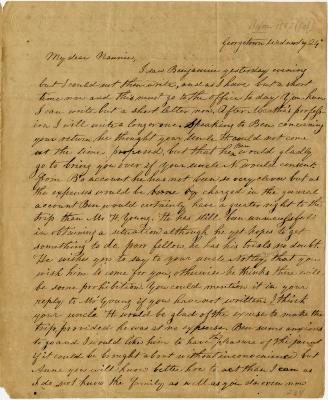 Georgetown Wednesday 24th
My dear Nannie,
I saw Benjamin yesterday evening
but I could not then write, and as I have but a short
time now and this must go to the office to day. You know
I can write but a short letter now. After
I will write a long one. Speaking to Ben concerning
your return he thought your Uncle N. would not come
at the time proposed, but that he would gladly
go to bring you over if your uncle N. would consent
from B's account he has not been so very clever but as
the expenses would be borne by charged in the general
account Ben would certainly have a greater right to the
trip than Mr. H. Young. He has still been unsuccessful
in obtaining a situation although he yet hopes to get
something to do poor fellow he has his trials no doubt.
He wishes you to say to your uncle Notley that you
wish him to come for you, otherwise he thinks there will
be some prohibition. You could mention it in your
reply to Mr Young if you have not written, I think
your uncle N. would be glad of the excuse to make the
trip provided he was at no expense. Ben seems anxious
to go and I would like him to have the pleasure of the jaunt
if it could be brought about without inconvenience but
Anne you will know better how to act than I can as
I do not know the family as well as you do even now